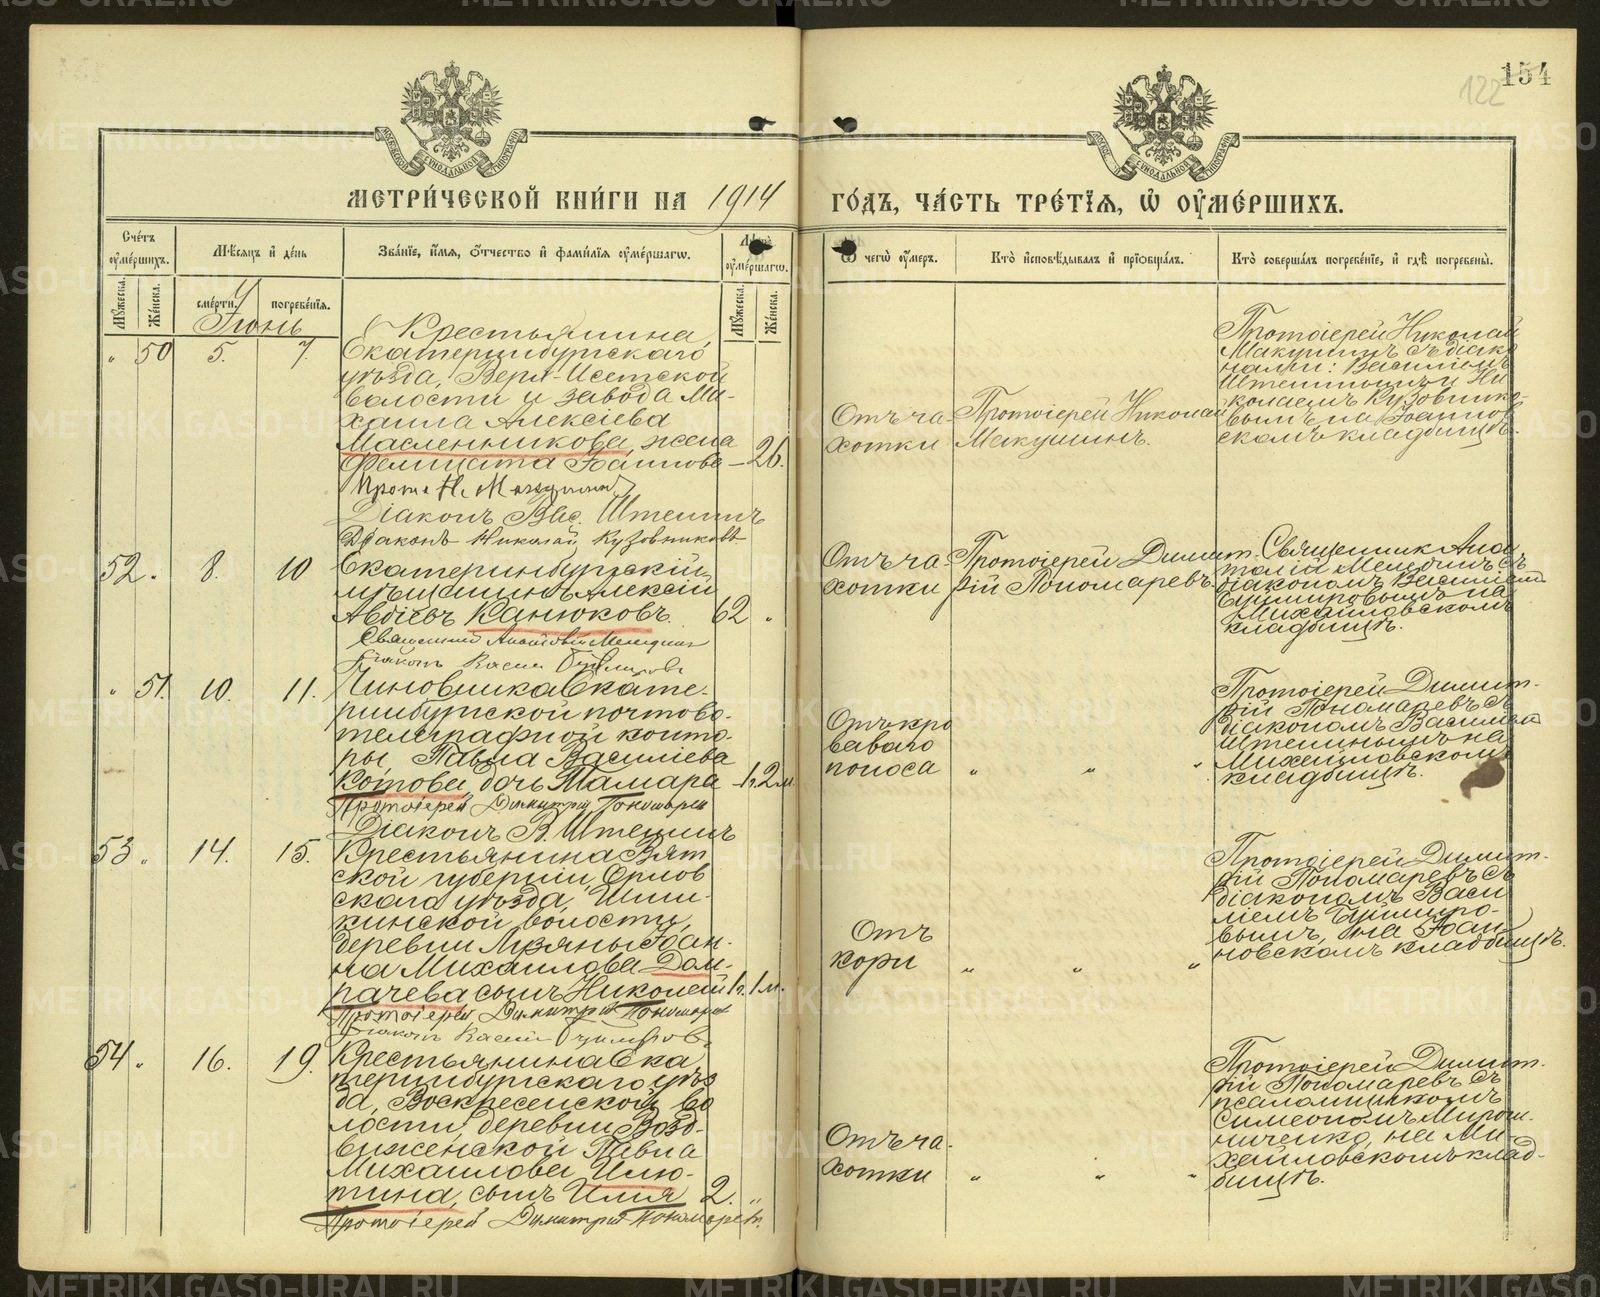 154
122
МЕТРИ́ЧЕСКОЙ КНИ́ГИ НА 1914 ГО́ДЪ, ЧА́СТЬ ТРЕ́ТІѦ, Ѡ ОУМЕ́РШИХЪ.
Сче́тъ оумершихъ.
Мꙋжеска.
Женска.
Мѣсяцъ и день
смерти.
погребенія.
Званіе, имя, отчество и фамилія оумершагѡ.
оумершагѡ.
Мꙋжеска.
Женска.
Ѿ чегѡ оумеръ.
Кто исповѣдывалъ и пріобщалъ.
Кто совершалъ погребеніе, и гдѣ погребены.
Іюнь
" 50 5. 7.
Крестьянина
Екатеринбургскаго
уѣзда, Верх-Исетской
волости и завода Ми-
хаила Алексіева
Масленникова, жена
Фелицата Іоаннова – 26.
Діаконъ Вас. Штеннинъ
Діаконъ Николай Кузовниковъ
Отъ ча-
хотки
Протоіерей Николай
Макушинъ.
Протоіерей Николай
Макушинъ съ діако
нами: Василіемъ
Штеннинымъ и Ни
колаемъ Кузовнико-
вымъ на Іоаннов
скомъ кладбищѣ.
52. " 8. 10
Екатеринбургскій
мѣщанинъ Алексій
Авдіевъ Канюковъ. 62 "
Священникъ Анатолій
Діаконъ Васил
Отъ ча-
хотки
Протоіерей Димит-
рій Пономаревъ.
Священник Ана
толій съ
діакономъ Василіем
на
Михайловскомъ
кладбищѣ.
" 51. 10. 11.
Чиновника Екате-
ринбургской почтово-
телеграфной конто-
ры, Павла Василіева
Котова, дочь Тамара – 1г. 2м.
Протоіерей Димитрій Пономарев
Діаконъ В. Штеннинъ
Отъ кро
ваваго
поноса " " "
Протоіерей Димит-
рій Пономаревъ съ
діакономъ Василіем
Штеннинымъ на
Михайловскомъ
кладбищѣ.
53 " 14. 15.
Крестьянина Вят
ской губерніи Орлов
скаго уѣзда, Шиш-
кинской волости,
деревни Лузяны Іоан-
на Михаилова Дом-
рачева сынъ Николай 1г. 1м.
Протоіерей Димитрій Пономарев
Діаконъ Васил
Отъ
кори " " "
Протоіерей Димит-
рій Пономаревъ съ
діакономъ Васи
ліемъ
вымъ, на Іоан
новскомъ кладбищѣ.
54 " 16. 19.
Крестьянина Ека
теринбургскаго уѣз
да, Воскресенской во
лости, деревни Возд-
виженской Павла
Михаилова Илю-
тина, сынъ Илія 2. "
Протоіерей Димитрій Пономарев.
Отъ ча-
хотки " " "
Протоіерей Димит-
рій Пономаревъ съ
псаломщикомъ
Симеономъ Мирош-
ниченко, на Ми-
хайловскомъ клад-
бищѣ.
METRIKI.GASO-URAL.RU